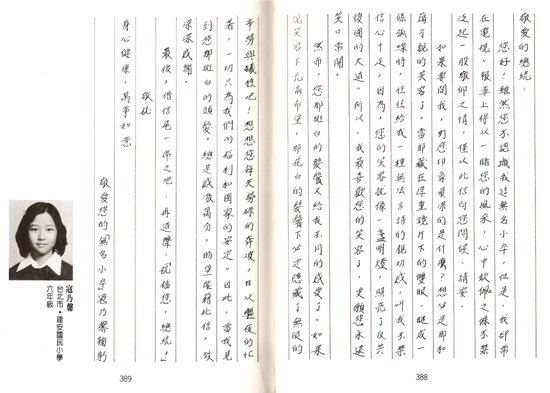 敬愛的總統:
您好!雖然您不認識我這無名小卒,但是,我卻常
在電視、報章上得以一睹您的風采,心中欽佩之餘不禁
泛起一股敬仰之情,僅以此信向您問候、請安。
如果要問我,對您印象最深的是什麼?想必是那和
藹可親的笑容了。當那藏在厚重鏡片下的雙眼,瞇成一
條弧線時,往往給我一種無法言語的親切感,叫我不禁
信心十足,因為,您的笑容就像一盞明燈,照亮了反共
復國的大道。所以,我最喜歡您的笑容了,更願您永遠
笑口常開。
然而,您那斑白的鬢髮又給我不同的感受了。如果
說笑容下充滿希望,那花白的鬢髮下必定隱藏了無限的
388
辛勞與犧牲吧!想想您每天勞碌的奔波,日以繼夜的忙
著,一切只為我們的福利和國家的安定。因此,當我見
到您那斑白的頭髮,總是感激萬分,盼望僅藉此信,致
深深感謝。
最後,借信尾一席之地,再道聲:「祝福您,總統!」
敬祝
身心健康,萬事如意
敬愛您的「無名小卒」寇乃馨鞠躬
寇乃馨
台北市・建安國民小學
六年級
389